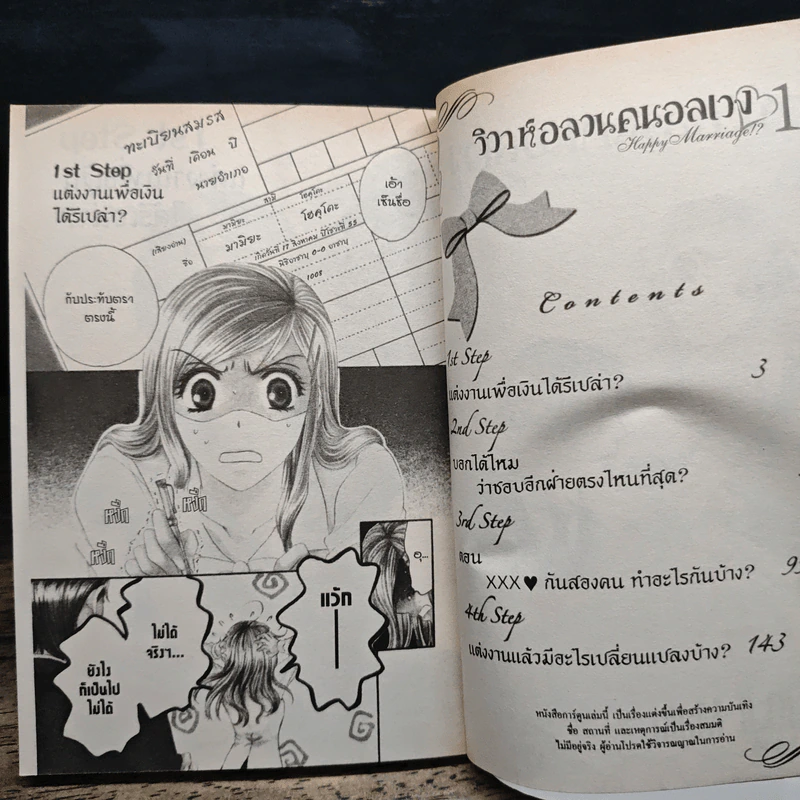 ทะเบียนสมรส
วันที่ เดือน ปี
นายอำเภอ
1st Step
แต่งงานเพื่อเงิน
ได้รึเปล่า?
เอ้า
เซ็นชื่อ
สามี
มามิยะ
โฮคุโตะ
(เสียงอ่าน)
ชื่อ
มามิยะ
โฮคุโตะ
กับประทับตรา
ตรงนี้
หงึก
หงึก
หงึก
อุ...
แว้ก
ไม่ได้
จริงๆ...
ยังไง
ก็เป็นไป
ไม่ได้
วิวาห์อลวนคนอลเวง 1
Happy Marriage!?
Contents
1st Step
แต่งงานเพื่อเงินได้รึเปล่า? 3
2nd Step
บอกได้ไหม
ว่าชอบอีกฝ่ายตรงไหนที่สุด?
3rd Step
ตอน
XXX♥ กันสองคน ทำอะไรกันบ้าง?
4th Step
แต่งงานแล้วมีอะไรเปลี่ยนแปลงบ้าง? 143
หนังสือการ์ตูนเล่มนี้ เป็นเรื่องแต่งขึ้นเพื่อสร้างความบันเทิง
ชื่อ สถานที่ และเหตุการณ์เป็นเรื่องสมมติ
ไม่มีอยู่จริง ผู้อ่านโปรดใช้วิจารณญาณในการอ่าน